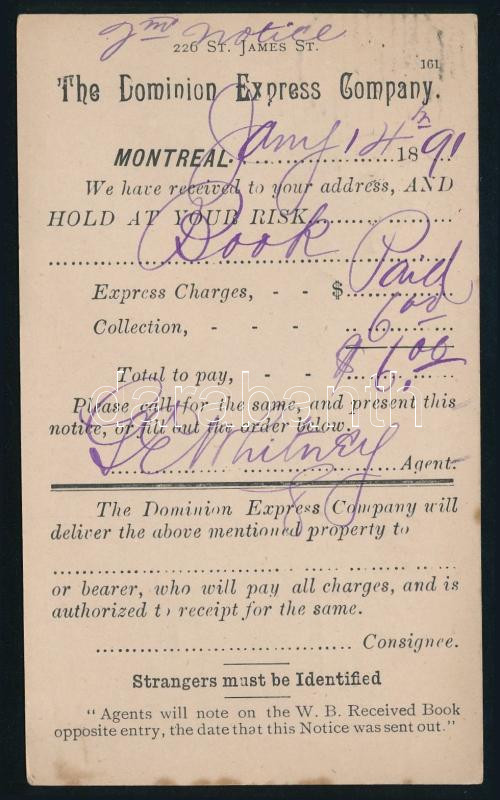 2nd notice
226 St. James St.
161
The Dominion Express Company.
MONTREAL. Jany 14th 1891
We have received to your address, AND
HOLD AT YOUR RISK
Book
Express Charges, - - $ Paid
Collection, - - - 6.00
Total to pay, - - $ 6.00
darabanth
Please call for the same, and present this
notice, or fill out the order below.
Whitney Agent.
The Dominion Express Company will
deliver the above mentioned property to
or bearer, who will pay all charges, and is
authorized to receipt for the same.
Consignee.
Strangers must be Identified
"Agents will note on the W. B. Received Book
opposite entry, the date that this Notice was sent out."